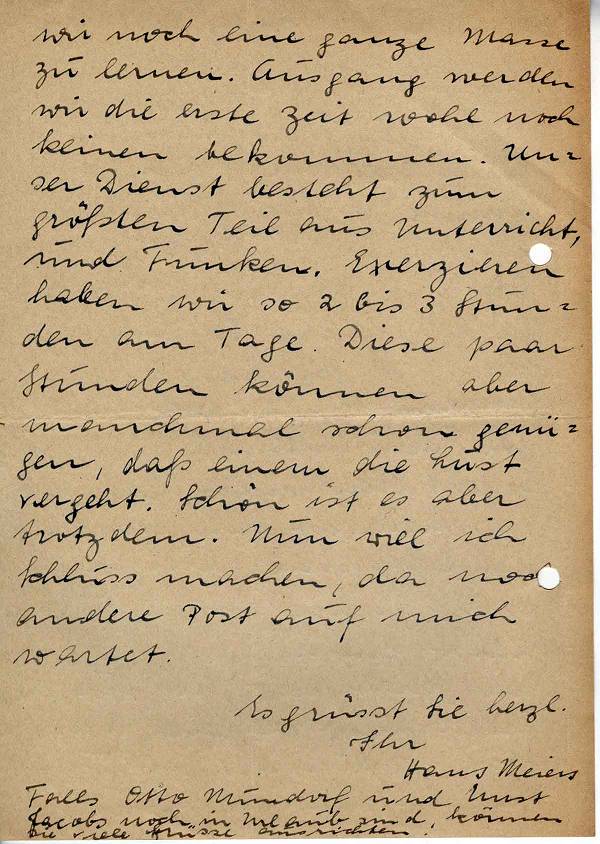 wir noch eine ganze Masse
zu lernen. Ausgang werden
wir die erste Zeit wohl noch
keinen bekommen. Un=
ser Dienst besteht zum
größten Teil aus Unterricht,
und Funken. Exerzieren
haben wir so 2 bis 3 Stun=
den am Tage. Diese paar
Stunden können aber
manchmal schon genü=
gen, daß einem die Lust
vergeht. Schön ist es aber
trotzdem. Nun will ich
Schluss machen, da noch
andere Post auf mich
wartet.
Es grüsst Sie herzl.
Ihr
Hans Meiers
Falls Otto Mundorf und Ernst
Jacobs noch in Urlaub sind, können
Sie viele Grüsse ausrichten.